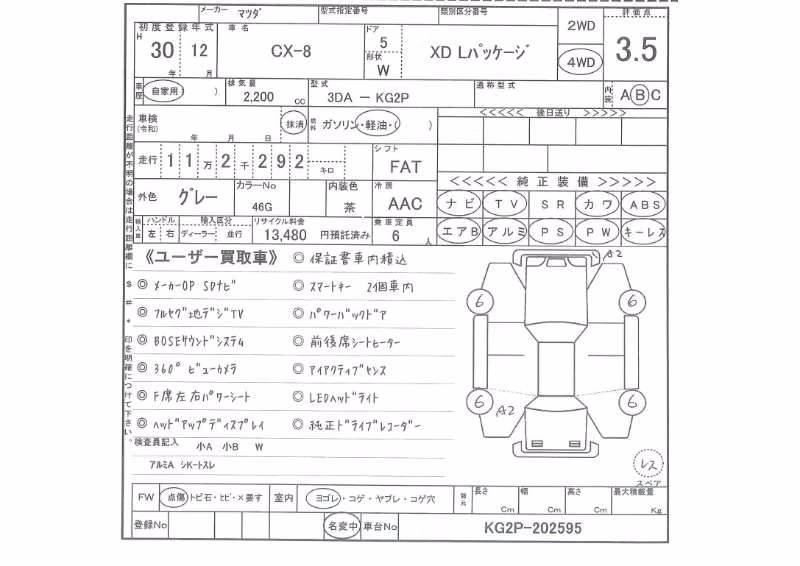 メーカー マツダ 型式指定番号 類別区分番号
初度登録年式 車名 ドア 2WD 評価点
H 30 年 12 月 CX-8 5 XD Lパッケージ 3.5
形状 W 4WD
車歴 自家用( ) 排気量 2,200 cc 型式 3DA-KG2P 通称型式 内装 A B C
車検 (令和) 年 月 日 抹消 燃料 ガソリン・軽油・( ) <<<<< 後日送り >>>>>
走行 11万2千292 キロ シフト FAT
外色 グレー カラーNo 46G 内装色 茶 冷房 AAC <<<<< 純正装備 >>>>>
ナビ TV SR カワ ABS
輸入車 ハンドル 左 右 輸入区分 ディーラー 並行 リサイクル料金 13,480 円預託済み 乗車定員 6 人 エアB アルミ PS PW キーレス
走行距離が不明の場合は走行距離欄に $ # * 印を明確につけて下さい。
《ユーザー買取車》 ◎ 保証書車内積込
◎ メーカーOP SDナビ ◎ スマートキー 2個車内
◎ フルセグ地デジTV ◎ パワーバックドア
◎ BOSEサウンドシステム ◎ 前後席シートヒーター
◎ 360°ビューカメラ ◎ アイアクティブセンス
◎ F席左右パワーシート ◎ LEDヘッドライト
◎ ヘッドアップディスプレイ ◎ 純正ドライブレコーダー
A2
6 6
6 A2 6
レス
スペア
検査員記入 小A 小B W
アルミA シKートスレ
FW 点傷・トビ石・ヒビ・×要す 室内 ヨゴレ・コゲ・ヤブレ・コゲ穴 諸元 長さ Cm 幅 Cm 高さ Cm 最大積載量 Kg
登録No 名変中 車台No KG2P-202595